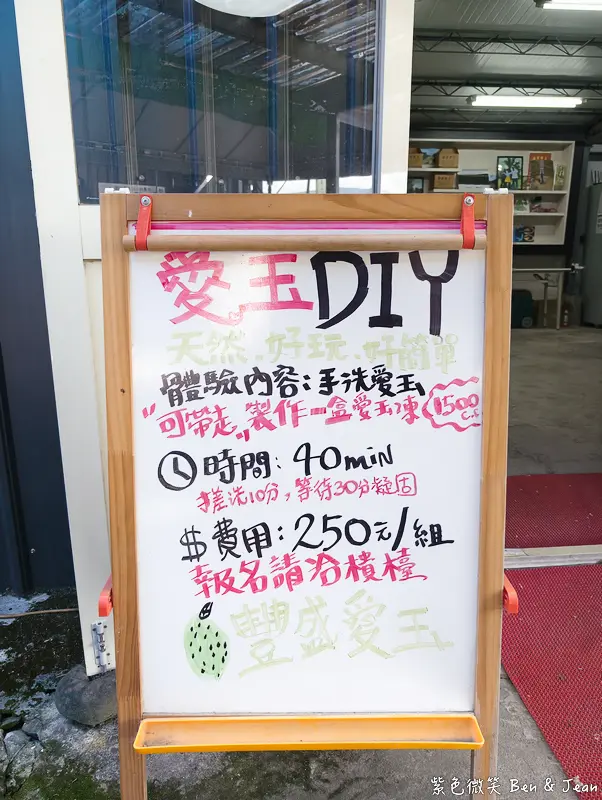 愛玉DIY
天然.好玩.好簡單
體驗內容:手洗愛玉
"可帶走"製作一盒愛玉凍 1500 c.c
時間:40min
搓洗10分,等待30分凝固
$費用:250元/組
報名請洽櫃檯
豐盛愛玉
紫色微笑 Ben & Jean